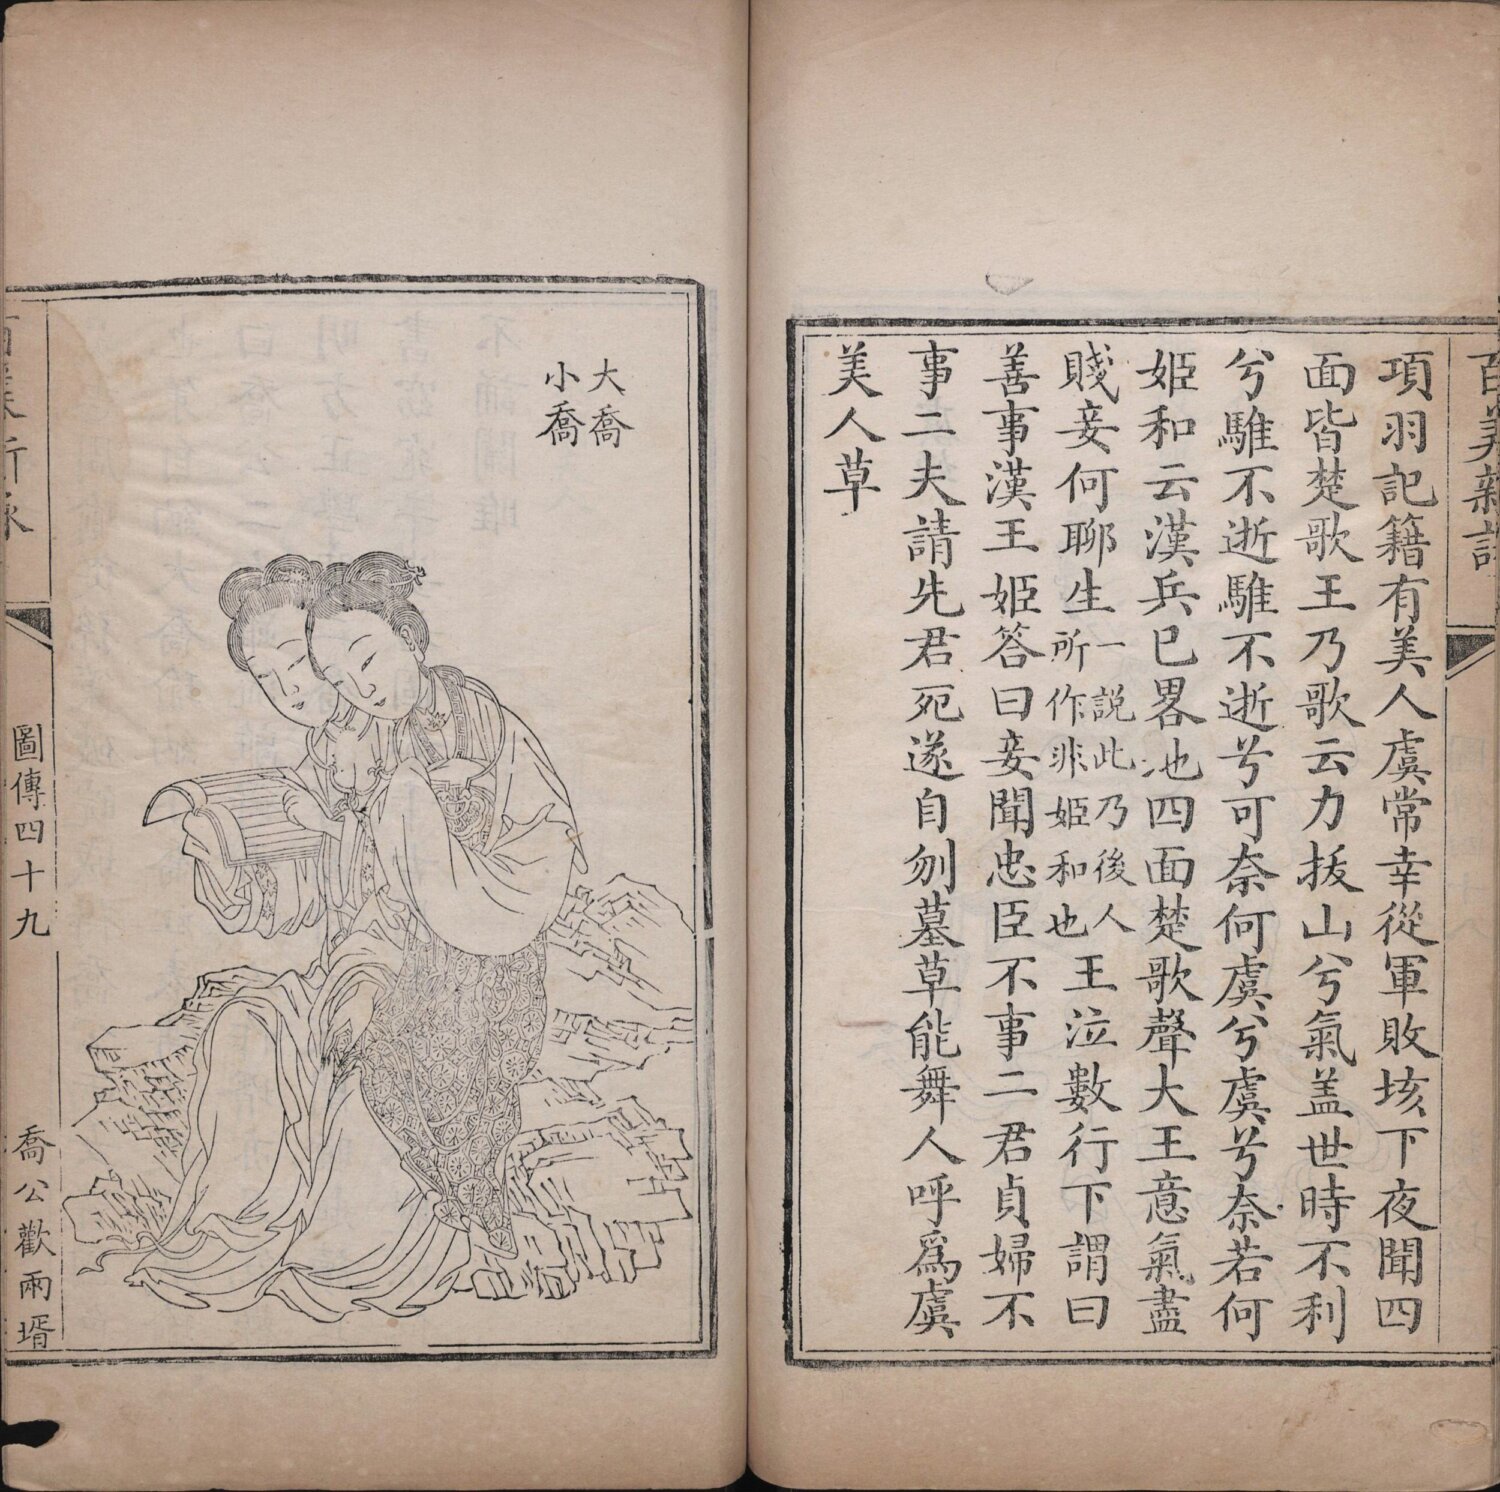 百美新詠
項羽記籍有美人虞常幸從軍敗垓下夜聞四
面皆楚歌王乃歌云力拔山兮氣盖世時不利
兮騅不逝騅不逝兮可奈何虞兮虞兮奈若何
姬和云漢兵已畧地四面楚歌聲大王意氣盡
賤妾何聊生一説此乃後人所作非姬和也王泣數行下謂曰
善事漢王姬答曰妾聞忠臣不事二君貞婦不
事二夫請先君死遂自刎墓草能舞人呼為虞
美人草
大喬
小喬
百美新詠
圖傳四十九
喬公歡兩壻